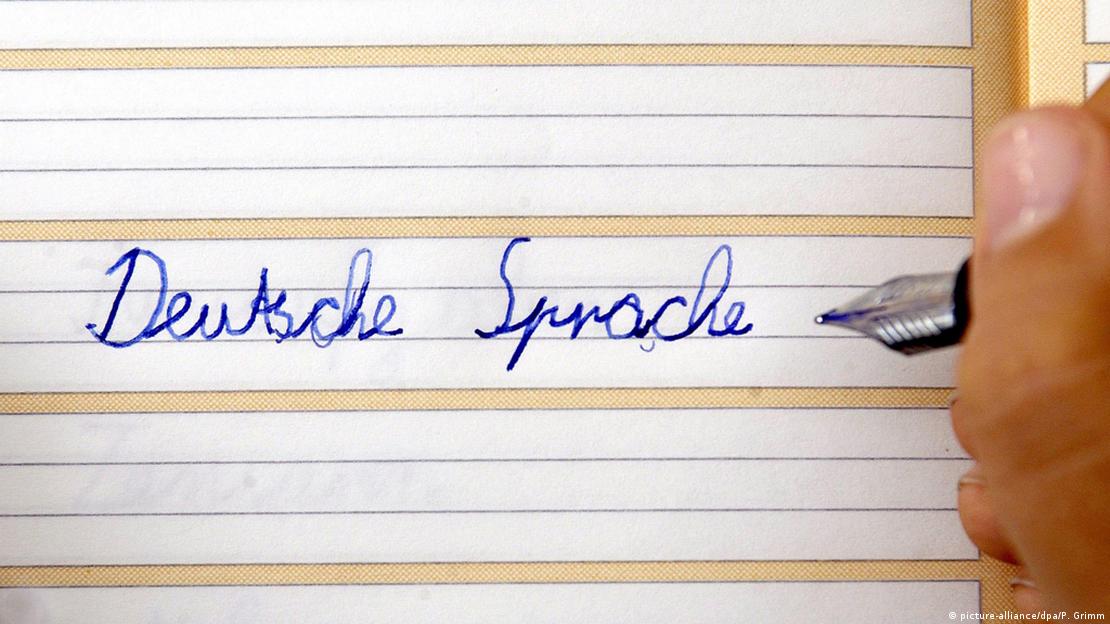 Deutsche Sprache
© picture-alliance/dpa/P. Grimm